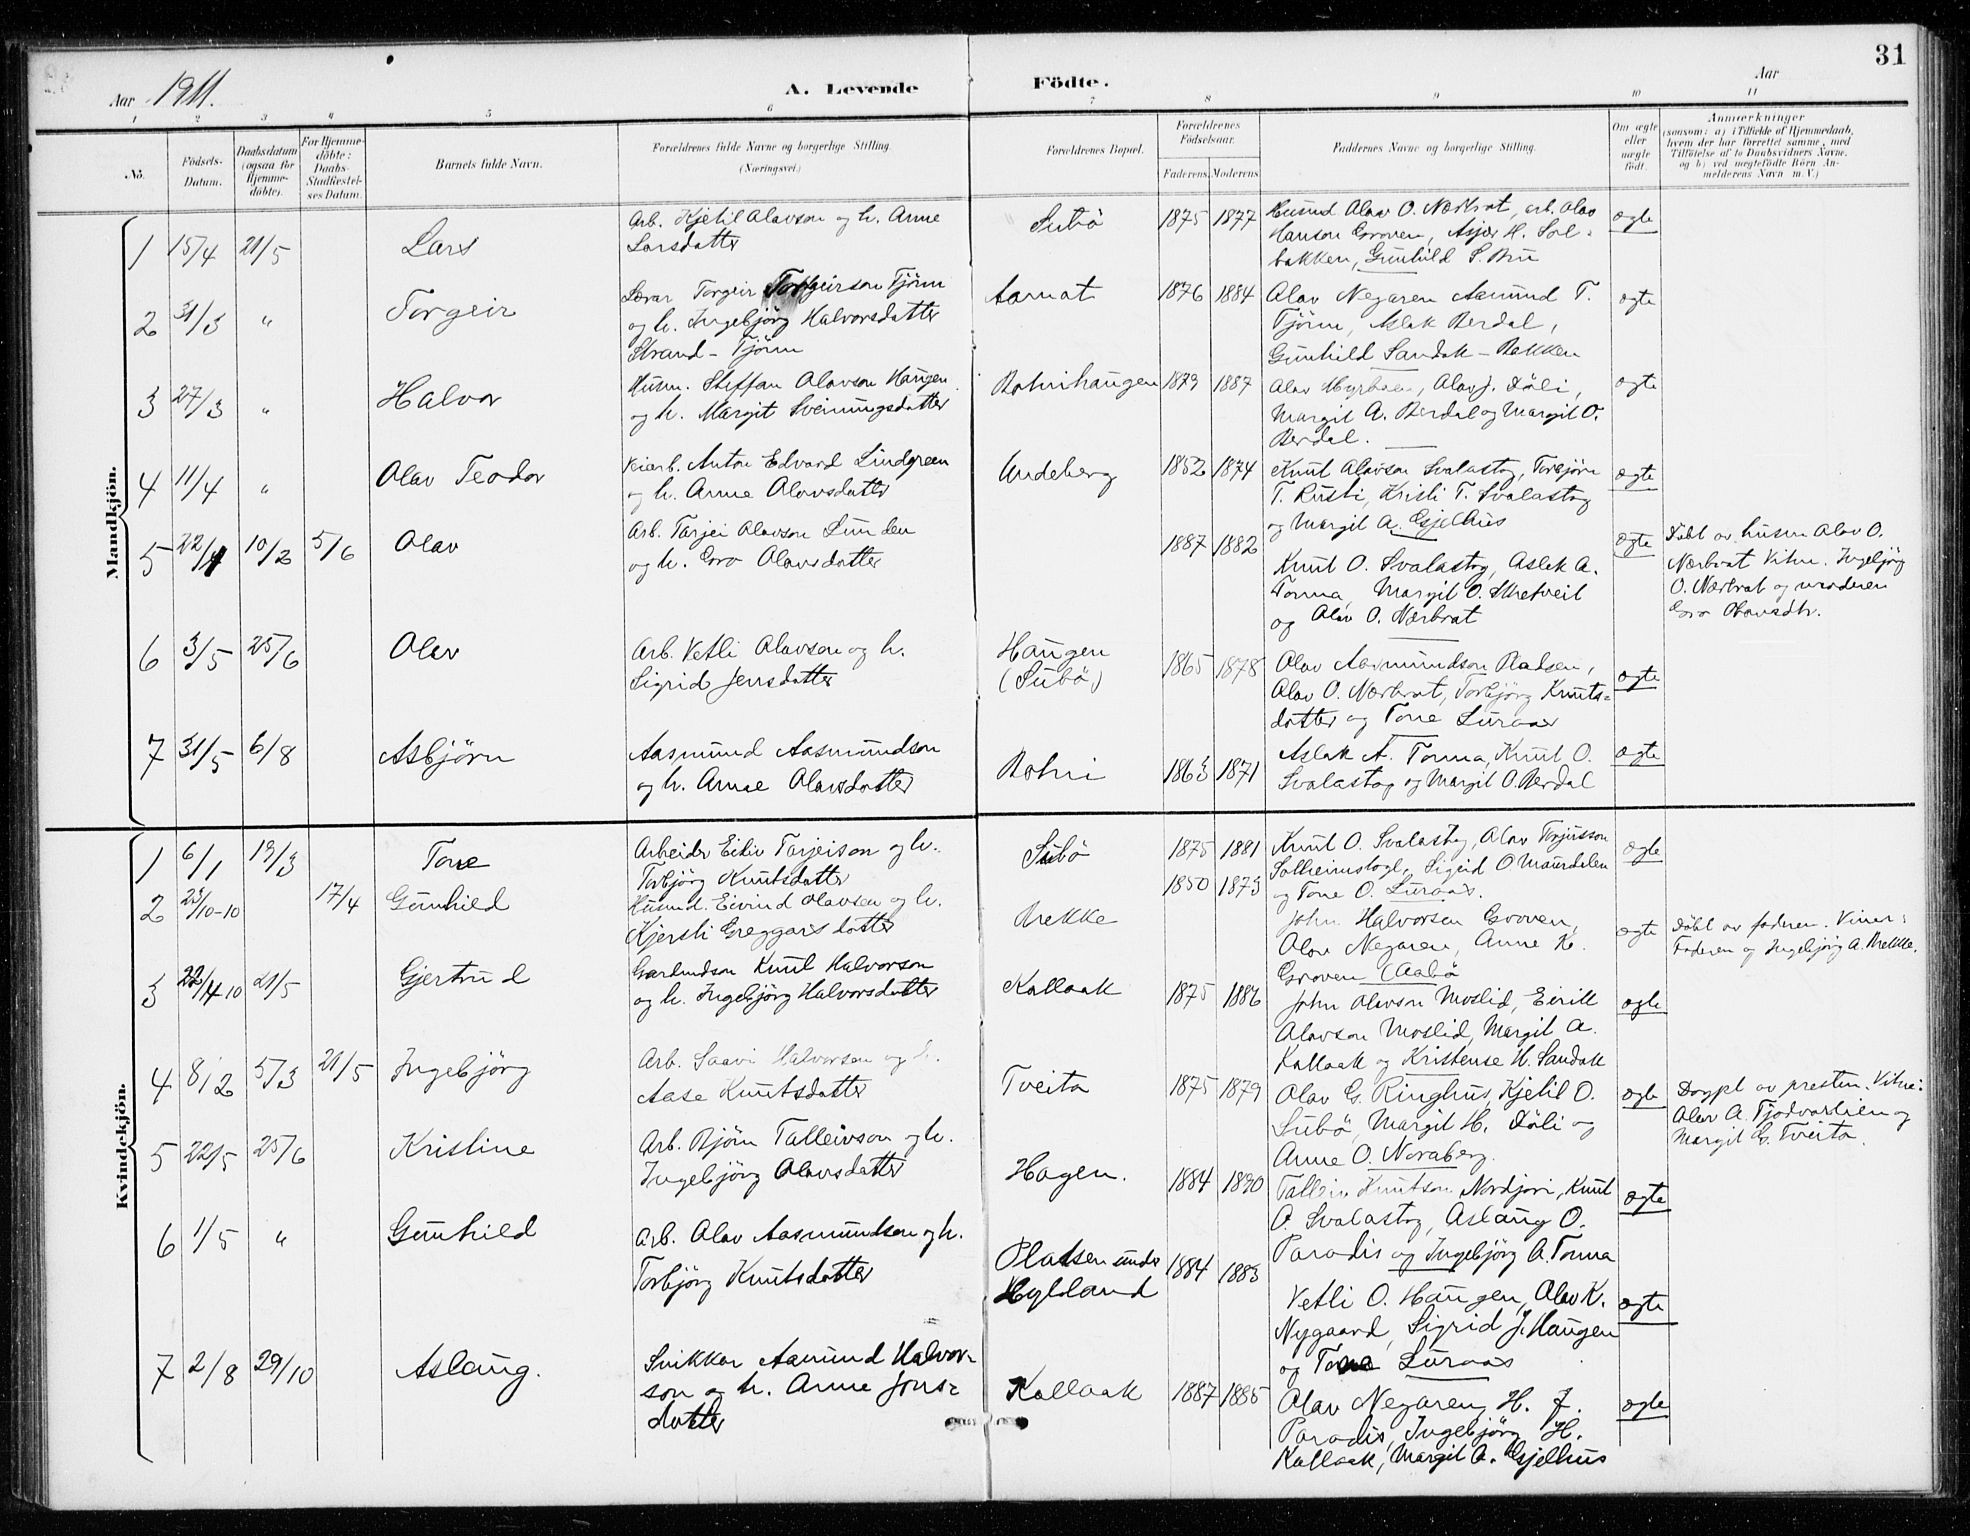 31
Aar 1911. A. Levende Födte. Aar
1 2 3 4 5 6 7 8 9 10 11
No. Födsels-Datum. Daabsdatum (ogsaa for Hjemmedöbte). For Hjemmedöbte: Daabs-Stadfæstelses Datum. Barnets fulde Navn. Forældrenes fulde Navne og borgerlige Stilling. (Næringsvei.) Forældrenes Bopæl. Forældrenes Födselsaar. Faderens. Moderens. Faddernes Navne og borgerlige Stilling. Om ægte eller uægte födt. Anmærkninger (saasom: a) i Tilfælde af Hjemmedaab, hvem der har forrettet samme, med Tilföielse af to Daabsvidners Navne, og b) ved uægtefödte Börn Anmelderens Navn m. V.)
Mandkjön.
1 15/4 21/5 Lars Arb. Kjetil Olavson og h. Anne
Larsdatter Subö 1875 1877 Husmd Olav O. Nærbrat, arb. Olav
Hanson Groven, Asjer H. Sol-
bakken, Gunhild S. Bru ægte
2 31/3 " Torgeir Lærar Torgeir Torgeirson Tjörn
og h. Ingebjörg Halvorsdatter
Strand - Tjörn Aamot 1876 1884 Olav Negaren Aamund T.
Tjörn, Aslak Berdal,
Gunhild Sandok - Bakken ægte
3 27/3 " Halvor Husm. Steffan Olavson Haugen
og h. Margit Sveinungsdatter Botnihaugen 1879 1887 Olav Myrboe, Olav J. Döli,
Margit A. Berdal og Margit O.
Berdal. ægte
4 11/4 " Olav Teodor Veiarb. Anton Edvard Lindgreen
og h. Anne Olavsdatter Undeberg 1852 1874 Knut Olavson Svalastog, Torbjörn
T. Rusti, Kristi T. Svalastog
og Margit A. Gjelhus ægte
5 22/4 10/2 5/6 Olav Arb. Tarjei Olavson Lunden
og h. Gro Olavsdatter 1887 1882 Knut O. Svalastog, Aslak A.
Tonna, Margit O. Skretveit
og Olav O. Nærbrat ægte Döbt av husm Olav O.
Nærbrat Vitne. Ingebjörg
O. Nærbrat og moderen
Gro Olavsdtr.
6 3/5 25/6 Olav Arb. Vetli Olavson og h.
Sigrid Jensdatter Haugen
(Subö) 1865 1878 Olav Aasmundson Pladsen,
Olav O. Nærbrat, Torbjörg Knuts=
datter og Tone Luraas ægte
7 31/5 6/8 Asbjörn Aasmund Aasmundson
og h. Anne Olavsdatter Botni 1863 1871 Aslak A. Tonna, Knut O.
Svalastog og Margit O. Berdal ægte
Kvindekjön.
1 6/1 19/3 Tone Arbeider Eiliv Tarjeison og h.
Torbjörg Knutsdatter Subö 1875 1881 Knut O. Svalastog, Olav Torjusson
Solheimstogl, Sigrid O Maurdalen
og Tone O. Luraas. ægte
2 23/10-10 17/4 Gunhild Husmd. Eivind Olavsen og h.
Kjersti Greggarsdatter Brekke 1850 1873 John Halvorsen Groven,
Olav Negaren, Anne K.
Groven (Aabö ægte Döbt av faderen. Viner:
Faderen og Ingebjörg A. Brekke.
3 22/4 10 21/5 Gjertrud Gardmdson Knut Halvorson
og h. Ingebjörg Halvorsdatter Kallaak 1875 1886 John Olavson Moslid, Eirik
Olavson Moslid, Margit A.
Kallaak og Kristense H. Sandok ægte
4 8/2 5/3 21/5 Ingebjörg Arb. Saavi Halvorson og h.
Aase Knutsdatter Tveita 1875 1879 Olav G. Ringhus, Kjetil O.
Subö, Margit H. Döli og
Anne O. Noraberg. ægte Døypt av presten. Vitne:
Olav A. Tjodvarlien og
Margit G. Tveita.
5 22/5 25/6 Kristine Arb. Björn Talleivson og h.
Ingebjörg Olavsdatter Hagen. 1884 1890 Talleiv Knutson Nordjori, Knut
O. Svalastog, Aslaug O.
Paradis og Ingebjörg A. Tonna ægte
6 1/5 " Gunhild Arb. Olav Aasmundson og h.
Torbjörg Knutsdatter Pladsen under
Hylland 1884 1883 Vetli O. Haugen, Olav K.
Nygaard, Sigrid J. Haugen
og Tone Luraas ægte
7 2/8 29/10 Aslaug. Snikkar Aamund Halvor-
son og h. Anne Jons=
datter Kallaak 1887 1885 Olav Negaren, H. J.
Paradis, Ingebjörg H.
Kallaak, Margit A. Gjelhus ægte